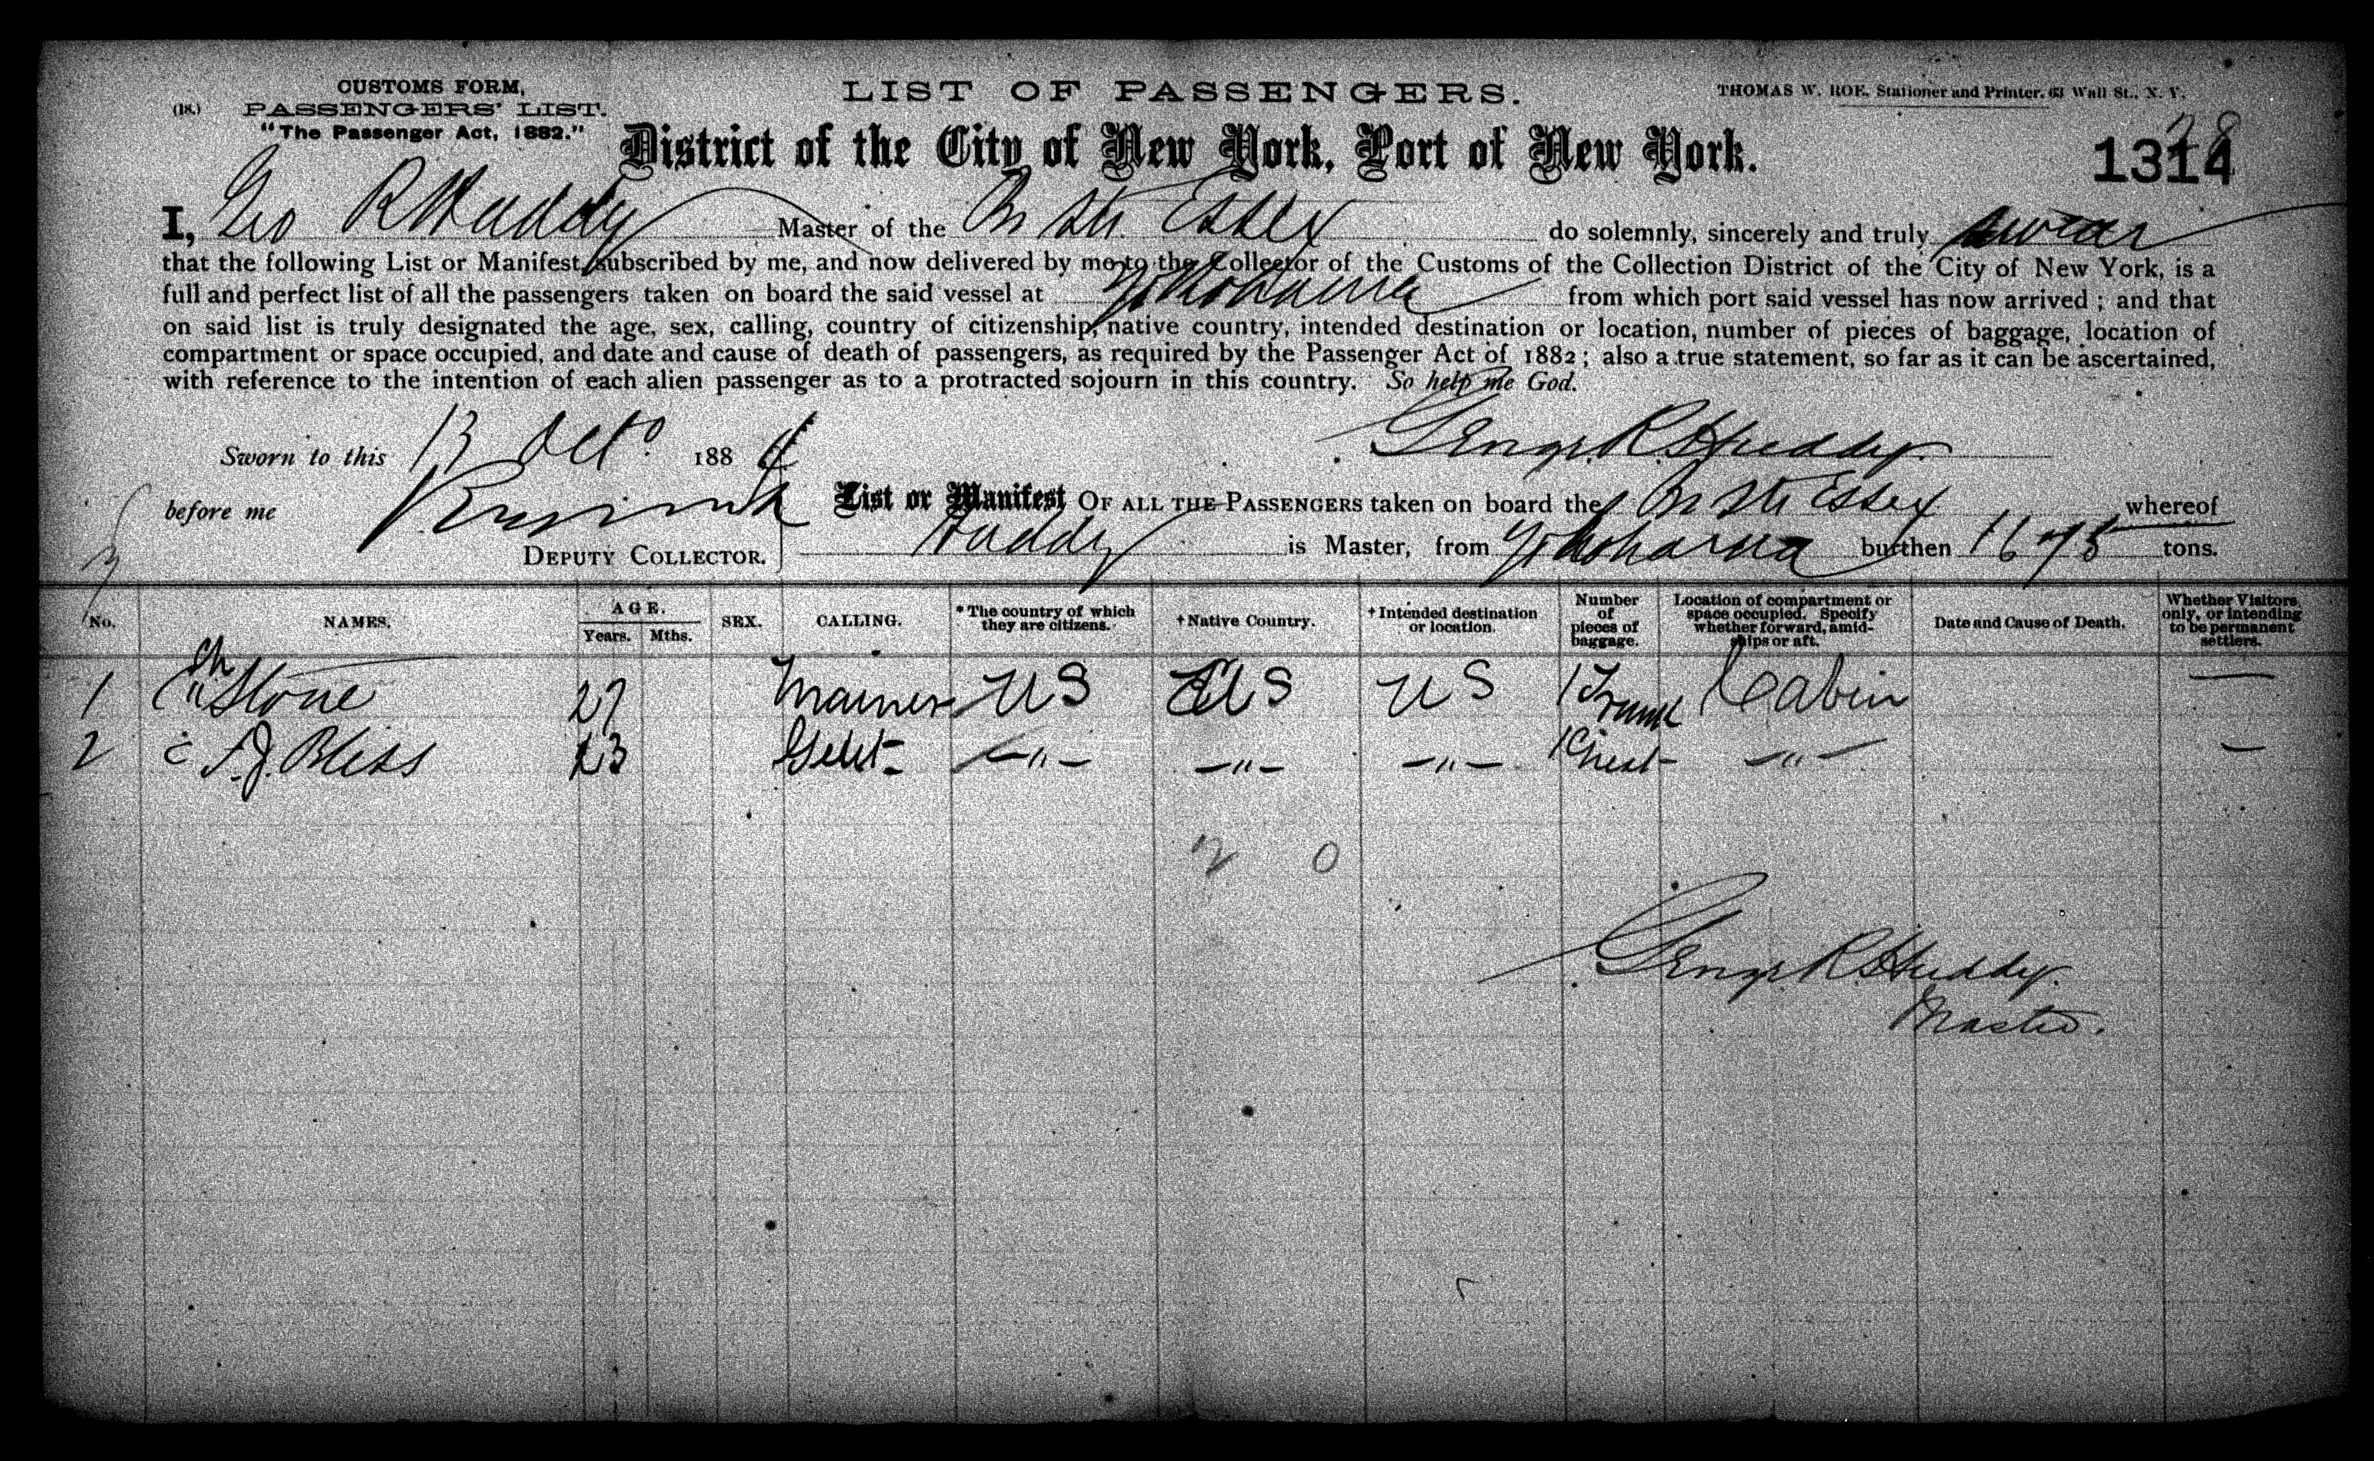 CUSTOMS FORM,
(18.) PASSENGERS' LIST.
"The Passenger Act, 1882."
LIST OF PASSENGERS.
THOMAS W. ROE, Stationer and Printer, 63 Wall St., N. Y.
District of the City of New York, Port of New York.
1314
I, Geo R Huddy Master of the Br Str Essex do solemnly, sincerely and truly swear
that the following List or Manifest, subscribed by me, and now delivered by me to the Collector of the Customs of the Collection District of the City of New York, is a
full and perfect list of all the passengers taken on board the said vessel at Yokohama from which port said vessel has now arrived; and that
on said list is truly designated the age, sex, calling, country of citizenship, native country, intended destination or location, number of pieces of baggage, location of
compartment or space occupied, and date and cause of death of passengers, as required by the Passenger Act of 1882; also a true statement, so far as it can be ascertained,
with reference to the intention of each alien passenger as to a protracted sojourn in this country. So help me God.
Sworn to this 13 Octo 1884
George R. Huddy.
before me
List or Manifest OF ALL THE PASSENGERS taken on board the Br Str Essex whereof
DEPUTY COLLECTOR.
Huddy is Master, from Yokohama burthen 1675 tons.
No. NAMES. AGE. Years. Mths. SEX. CALLING. *The country of which they are citizens. †Native Country. †Intended destination or location. Number of pieces of baggage. Location of compartment or space occupied. Specify whether forward, amidships or aft. Date and Cause of Death. Whether Visitors only, or intending to be permanent settlers.
1 Stone 27 Mariner U S U S U S 1 Trunk Cabin —
2 Bliss 23 Gent —"— —"— —"— 1 Chest —"— —
2 0
George R. Huddy.
Master.